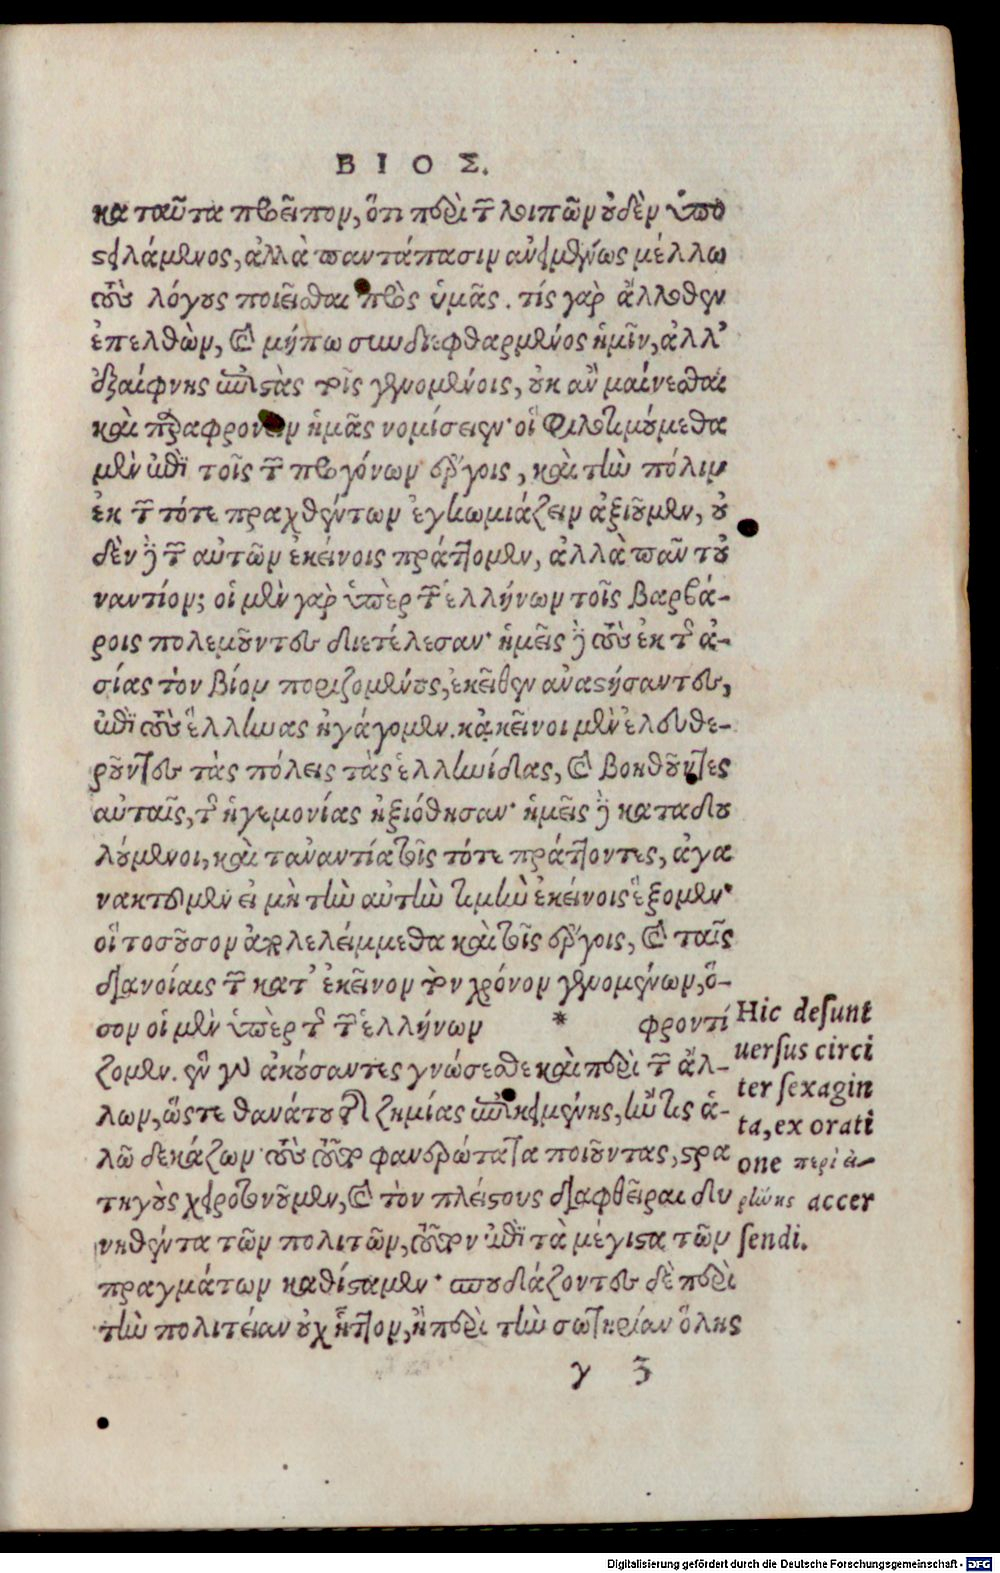 ΒΙΟΣ.
κα ταῦτα προεῖπον, ὅτι περὶ τῶν λοιπῶν οὐδὲν ὑπο
στειλάμενος, ἀλλὰ παντάπασιν ἀνειμένως μέλλω
τοὺς λόγους ποιεῖσθαι πρὸς ὑμᾶς. τίς γὰρ ἄλλοθεν
ἐπελθὼν, καὶ μήπω συνδιεφθαρμένος ἡμῖν, ἀλλ’
ἐξαίφνης ἐπιστὰς τοῖς γενομένοις, οὐκ ἂν μαίνεσθαι
καὶ παραφρονεῖν ἡμᾶς νομίσειεν· οἳ φιλοτιμούμεθα
μὲν ἐπὶ τοῖς τῶν προγόνων ἔργοις, καὶ τὴν πόλιν
ἐκ τῶν τότε πραχθέντων ἐγκωμιάζειν ἀξιοῦμεν, οὐ
δὲν δὲ τῶν αὐτῶν ἐκείνοις πράττομεν, ἀλλὰ πᾶν τοὐ
ναντίον; οἱ μὲν γὰρ ὑπὲρ τῶν ἑλλήνων τοῖς βαρβά-
ροις πολεμοῦντες διετέλεσαν· ἡμεῖς δὲ τοὺς ἐκ τῆς ἀ-
σίας τὸν βίον ποριζομένους, ἐκεῖθεν ἀναστήσαντες,
ἐπὶ τοὺς ἕλληνας ἠγάγομεν. κἀκεῖνοι μὲν ἐλευθε-
ροῦντες τὰς πόλεις τὰς ἑλληνίδας, καὶ βοηθοῦντες
αὐταῖς, τῆς ἡγεμονίας ἠξιόθησαν· ἡμεῖς δὲ καταδου
λούμενοι, καὶ τἀναντία τοῖς τότε πράττοντες, ἀγα
νακτοῦμεν εἰ μὴ τὴν αὐτὴν τιμὴν ἐκείνοις ἕξομεν·
οἳ τοσοῦσον ἀπολελείμμεθα καὶ τοῖς ἔργοις, καὶ ταῖς
διανοίαις τῶν κατ’ ἐκεῖνον τὸν χρόνον γενομένων, ὅ-
σον οἱ μὲν ὑπὲρ τῆς τῶν ἑλλήνων * φροντί
ζομεν. ἓν γοῦν ἀκούσαντες γνώσεσθε καὶ περὶ τῶν ἄλ-
λων, ὥστε θανάτου τῆς ζημίας ἐπικειμένης, ἤν τις ἁ-
λῷ δεκάζων· τοὺς τοῦτο φανερώτατα ποιοῦντας, στρα
τηγοὺς χειροτονοῦμεν, καὶ τὸν πλείστους διαφθεῖραι δυ
νηθέντα τῶν πολιτῶν, τοῦτον ἐπὶ τὰ μέγιστα τῶν
πραγμάτων καθίσταμεν· σπουδάζοντες δὲ περὶ
τὴν πολιτείαν οὐχ ἧττον, ἢ περὶ τὴν σωτηρίαν ὅλης
γ 3
Hic desunt
uersus circi
ter sexagin
ta, ex orati
one περὶ εἰ-
ρήνης accer
sendi.
Digitalisierung gefördert durch die Deutsche Forschungsgemeinschaft - DFG